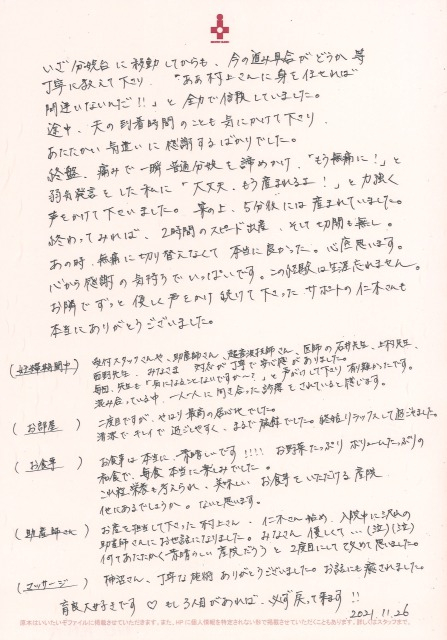 いざ分娩台に移動してからも、今の進み具合がどうか等
丁寧に教えて下り、「ああ村上さんに身を任せれば
間違いないんだ!!」と全力で信頼していました。
途中、夫の到着時間のことも気にかけて下り、
あたたかい気遣いに感謝するばかりでした。
終盤、痛みで一瞬普通分娩を諦めかけ、「もう無痛に!」と
弱音発言をした私に「大丈夫、もう産まれるよ!」と力強く
声をかけて下さいました。案の上、5分後には産まれていました。
終わってみれば、2時間のスピード出産、そして切開も無し。
あの時、無痛に切り替えなくて本当に良かった。心底思います。
心から感謝の気持ちでいっぱいです。この経験は生涯忘れません。
お隣でずっと優しく声をかけ続けて下さったサポートの仁木さんも
本当にありがとうございました。
(妊婦期間中) 受付スタッフさんや、助産師さん、超音波技師さん、医師の石井先生、上村先生、
西野先生、みなさま対応が丁寧で安心感がありました。
毎回、先生も「気になることないですか〜?」と声がけして下り有難かったです。
混み合っている中、一人一人に向き合った診療をされていると感じます。
(お部屋) 二度目ですが、やはり最高の居心地でした。
清潔でキレイで過ごしやすく、まるで旅館でした。終始リラックスして過ごせました。
(お食事) お食事は本当に、素晴しいです!!!! お野菜たっぷりボリュームたっぷりの
和食で、毎食本当に楽しみでした。
これ程栄養も考えられ、美味しいお食事をいただける産院、
他にあるでしょうか。ないと思います。
(助産師さん) お産を担当して下さった村上さん、仁木さん始め、入院中に沢山の
助産師さんにお世話になりました。みなさん優しくて…(泣)(泣)
何てあたたかく素晴らしい産院だろうと2度目にして改めて思いました。
(マッサージ) 神沼さん、丁寧な施術ありがとうございました。お話にも癒されました。
育良大好きです♡ もし3人目があれば、必ず戻って来ます!!
2021.11.26